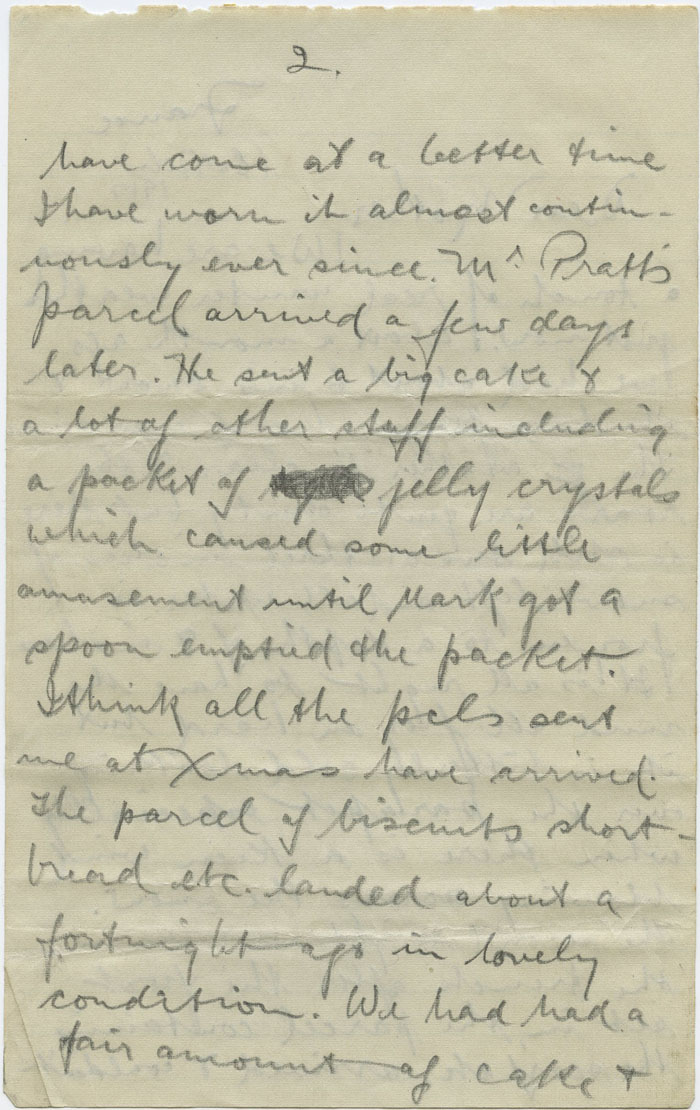 2.
have come at a better time
I have worn it almost contin-
uously ever since. Mr Pratt's
parcel arrived a few days
later. He sent a big cake &
a lot of other stuff including
a packet of jelly crystals
which caused some little
amusement until Mark got a
spoon emptied the packet.
I think all the pcls sent
me at Xmas have arrived.
The parcel of biscuits short-
bread etc. landed about a
fortnight ago in lovely
condition. We had had a
fair amount of cake &